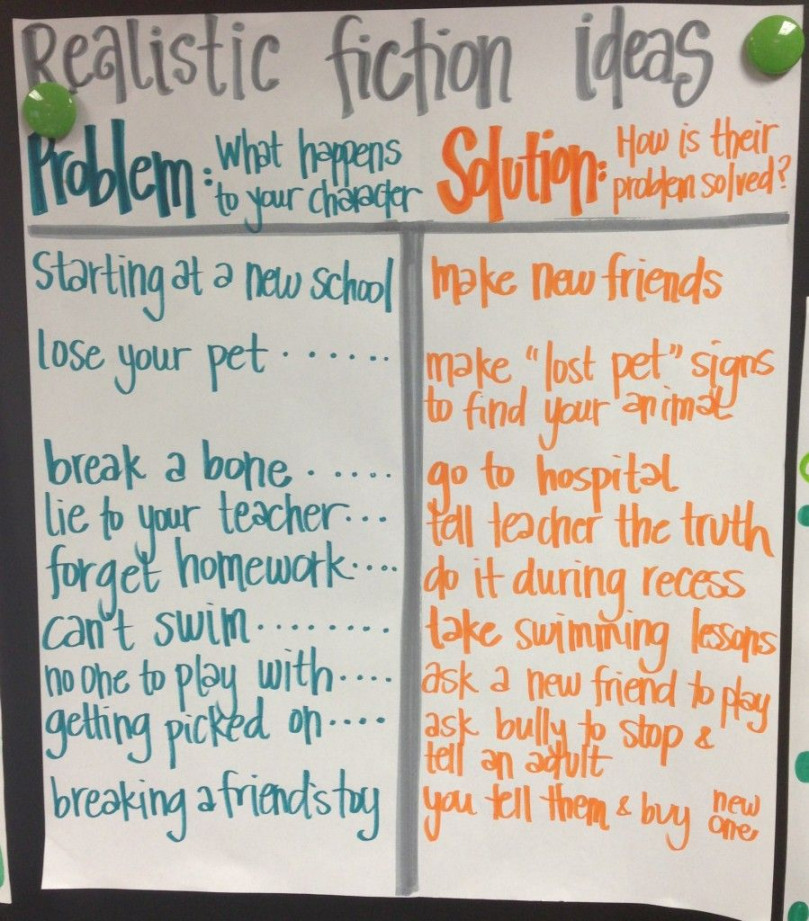 Realistic fiction ideas
Problem: What happens
to your character
Solution: How is their
problem solved?
Starting at a new school
make new friends
lose your pet ......
make "lost pet" signs
to find your animal
break a bone .....
go to hospital
lie to your teacher...
tell teacher the truth
forget homework....
do it during recess
can't swim ........
take swimming lessons
no one to play with ....
ask a new friend to play
getting picked on ....
ask bully to stop &
tell an adult
breaking a friend's toy
you tell them & buy new
one